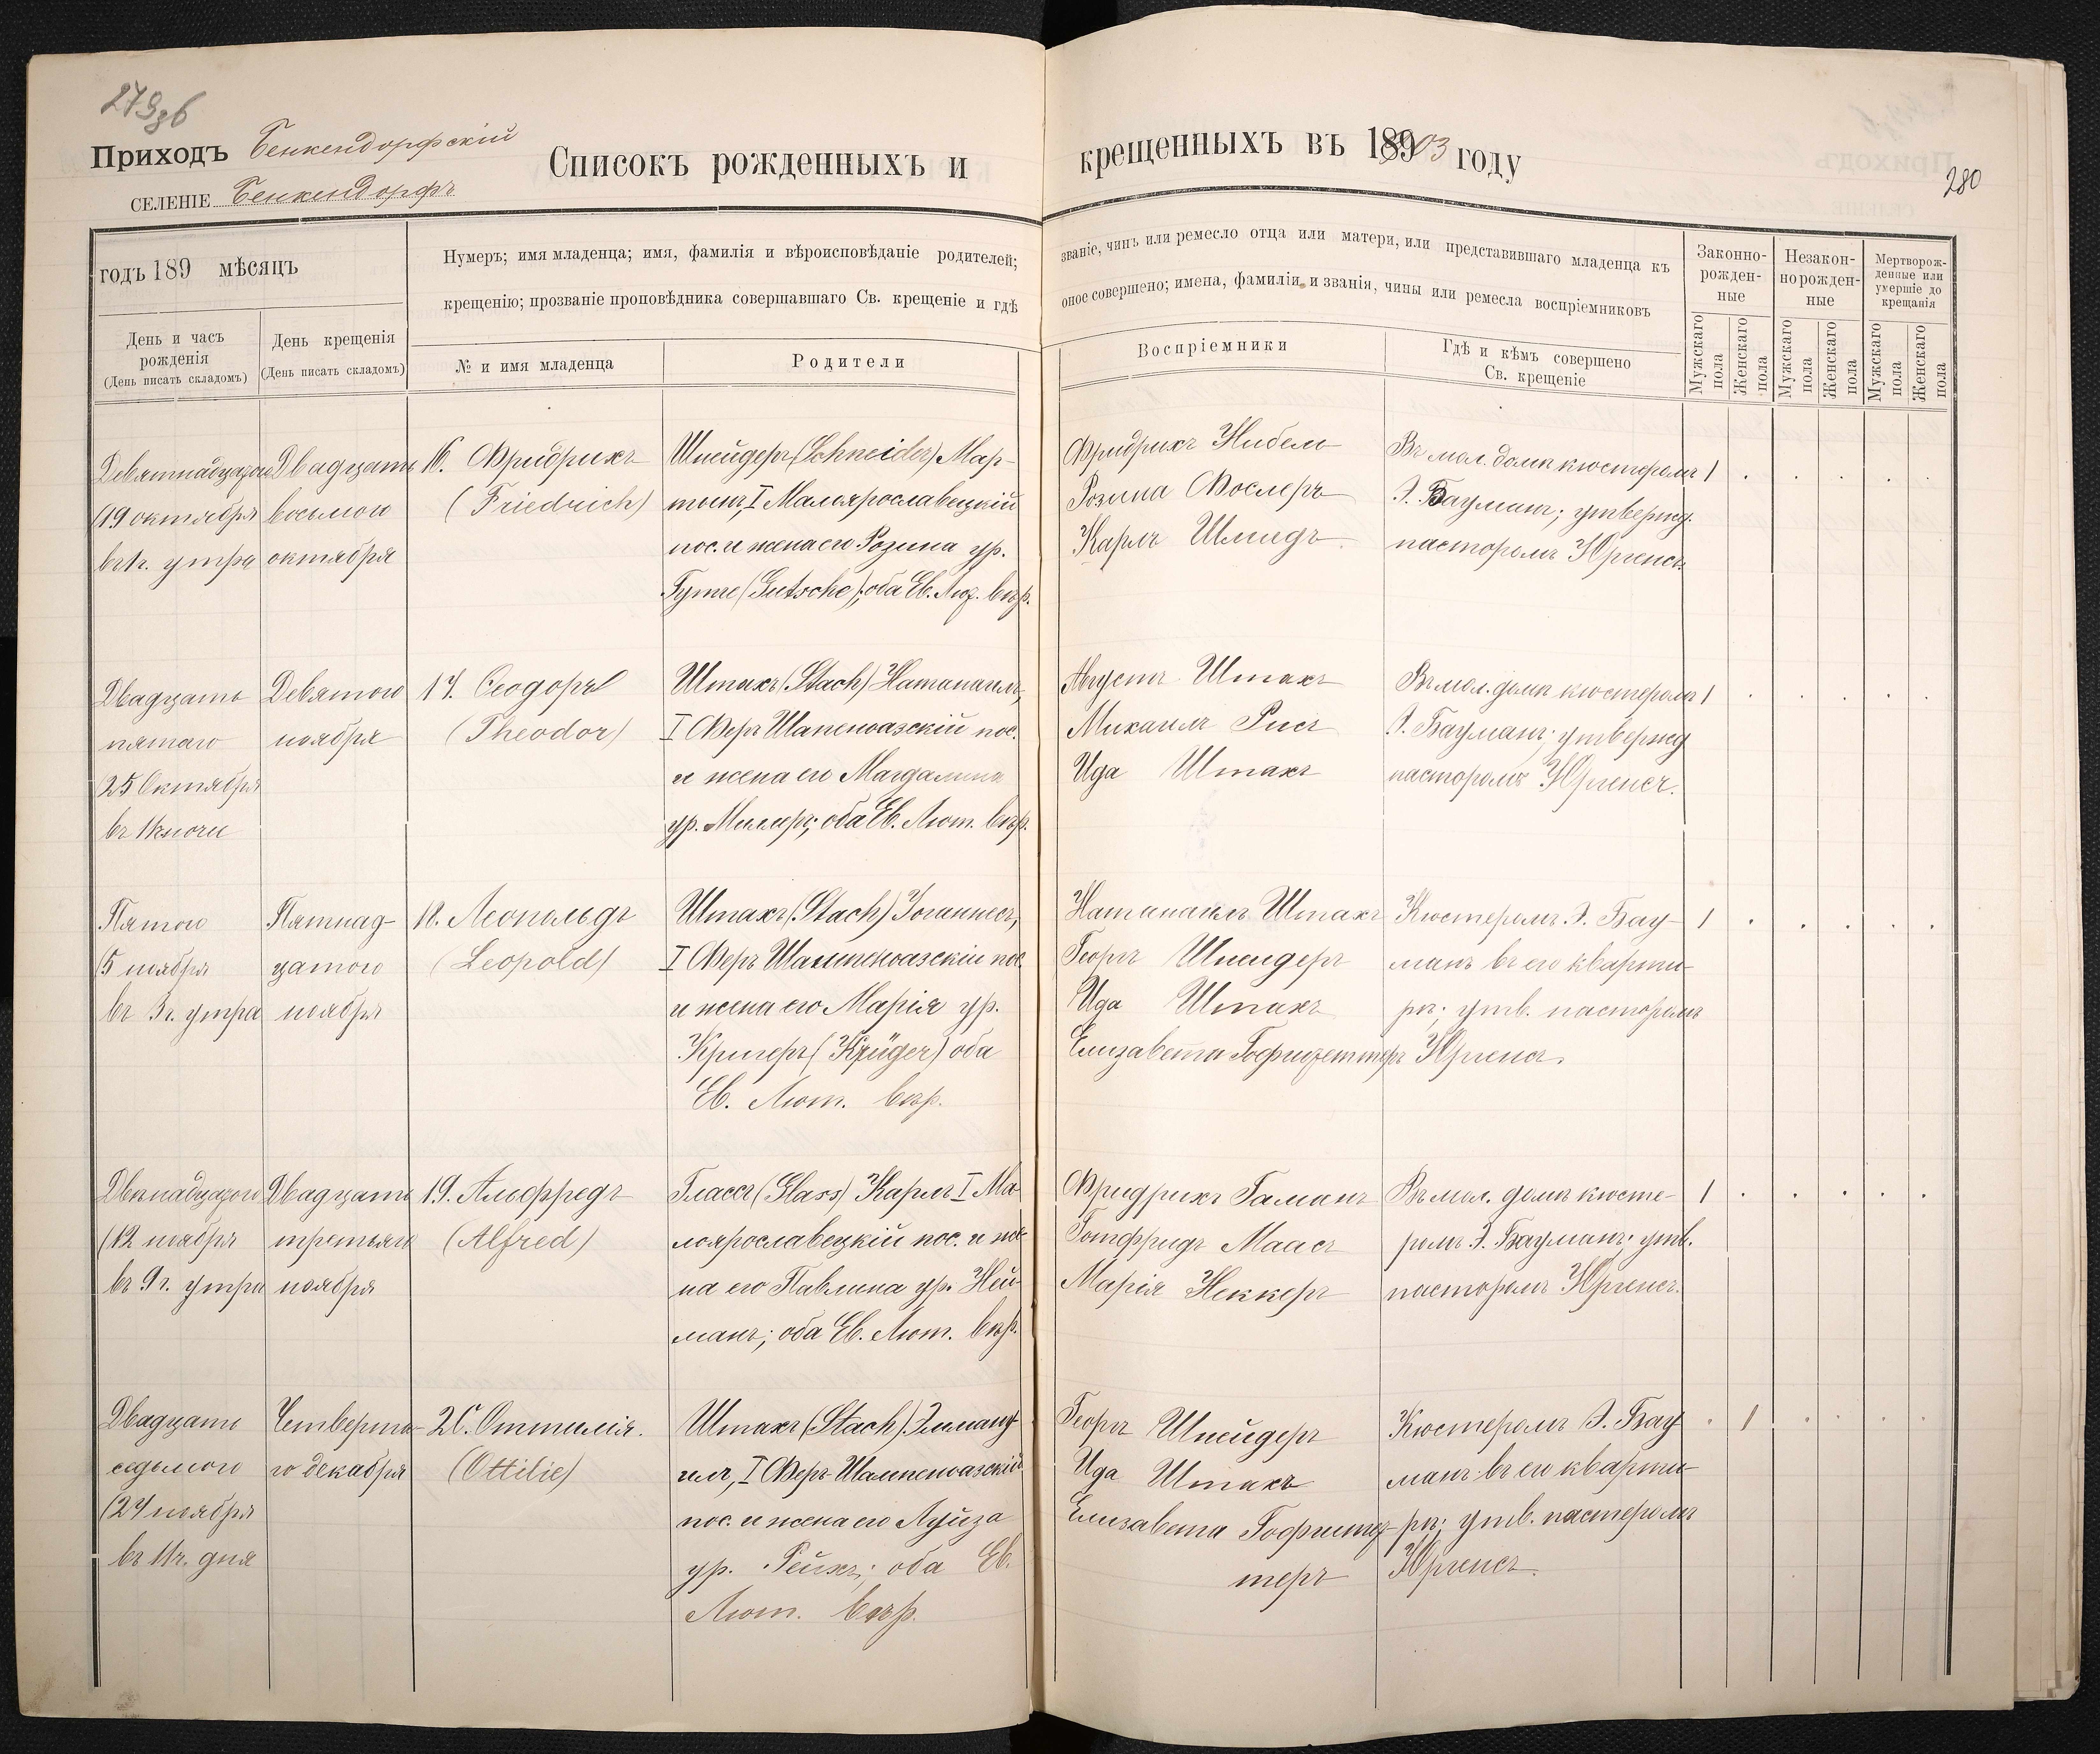 279 об
Приходъ Бенкендорфскій
СЕЛЕНІЕ Бенкендорфъ
Списокъ рожденныхъ и крещенныхъ въ 1903 году
280
годъ 189 мѣсяцъ
День и часъ
рожденія
(День писать складомъ)
День крещенія
(День писать складомъ)
Нумеръ; имя младенца; имя, фамилія и вѣроисповѣданіе родителей;
крещенію; прозваніе проповѣдника совершавшаго Св. крещеніе и гдѣ
№ и имя младенца
Родители
званіе, чинъ или ремесло отца или матери, или представившаго младенца къ
оное совершено; имена, фамиліи и званія, чины или ремесла воспріемниковъ
Воспріемники
Гдѣ и кѣмъ совершено
Св. крещеніе
Законно-
рожден-
ные
Незакон-
норожден-
ные
Мертворож-
денные или
умершіе до
крещанія
Мужскаго
пола
Женскаго
пола
Мужскаго
пола
Женскаго
пола
Мужскаго
пола
Женскаго
пола
Девятнадцатаго
(19 октября
въ 1ч. утра
Двадцать
восьмого
октября
16. Фридрихъ
(Friedrich)
Шнейдеръ (Schneider) Мар-
тинъ, I Малоярославецкій
пос. и жена его Розина ур.
Гутше (Gutsche); оба Ев. Лют. вѣр.
Фридрихъ Нибель
Розина Фослеръ
Карлъ Шмидъ
Въ мол. домѣ кюстеромъ
Э. Бауманъ; утвержд.
пасторомъ Юргенсъ
1 . . . . .
Двадцать
пятаго
(25 Октября
въ 11ч ночи
Девятого
ноября
17. Ѳеодоръ
(Theodor)
Штахъ (Stach) Натанаилъ,
I Феръ Шапеноазскій пос.
и жена его Магдалина
ур. Миллеръ; оба Ев. Лют. вѣр.
Августъ Штахъ
Михаилъ Рисъ
Ида Штахъ
Въ мол. домѣ кюстеромъ
Э. Бауманъ; утвержд
пасторомъ Юргенсъ.
1 . . . . .
Пятого
(5 ноября
въ 3ч. утра
Пятнад-
цатого
ноября
18. Леопольдъ
(Leopold)
Штахъ (Stach) Іоганнесъ,
I Феръ Шампеноазскій пос.
и жена его Марія ур.
Кригеръ (Krüger) оба
Ев. Лют. вѣр.
Натанаилъ Штахъ
Георгъ Шнейдеръ
Ида Штахъ
Елизавета Гофштеттеръ
Кюстеромъ Э. Бау-
манъ въ его кварти-
рѣ; утв. пасторомъ
Юргенсъ.
1 . . . . .
Двѣнадцатого
(12 ноября
въ 9ч. утра
Двадцать
третьяго
ноября
19. Альфредъ
(Alfred)
Глассъ (Glass) Карлъ I Ма-
лоярославецкій пос. и же-
на его Павлина ур. Ней-
манъ; оба Ев. Лют. вѣр.
Фридрихъ Гаманъ
Готфридъ Маасъ
Марія Неккеръ
Въ мол. домѣ кюсте-
ромъ Э. Бауманъ; утв.
пасторомъ Юргенсъ.
1 . . . . .
Двадцать
седьмого
(27 ноября
въ 11ч. дня
Четверта-
го декабря
20. Оттилія.
(Ottilie)
Штахъ (Stach) Эмману-
илъ, I Феръ-Шампеноазскій
пос. и жена его Луйза
ур. Рейхъ; оба Ев.
Лют. вѣр.
Георгъ Шнейдеръ
Ида Штахъ
Елизавета Гофштет-
теръ
Кюстеромъ Э. Бау
манъ въ его кварти-
рѣ; утв. пасторомъ
Юргенсъ.
. 1 . . . .